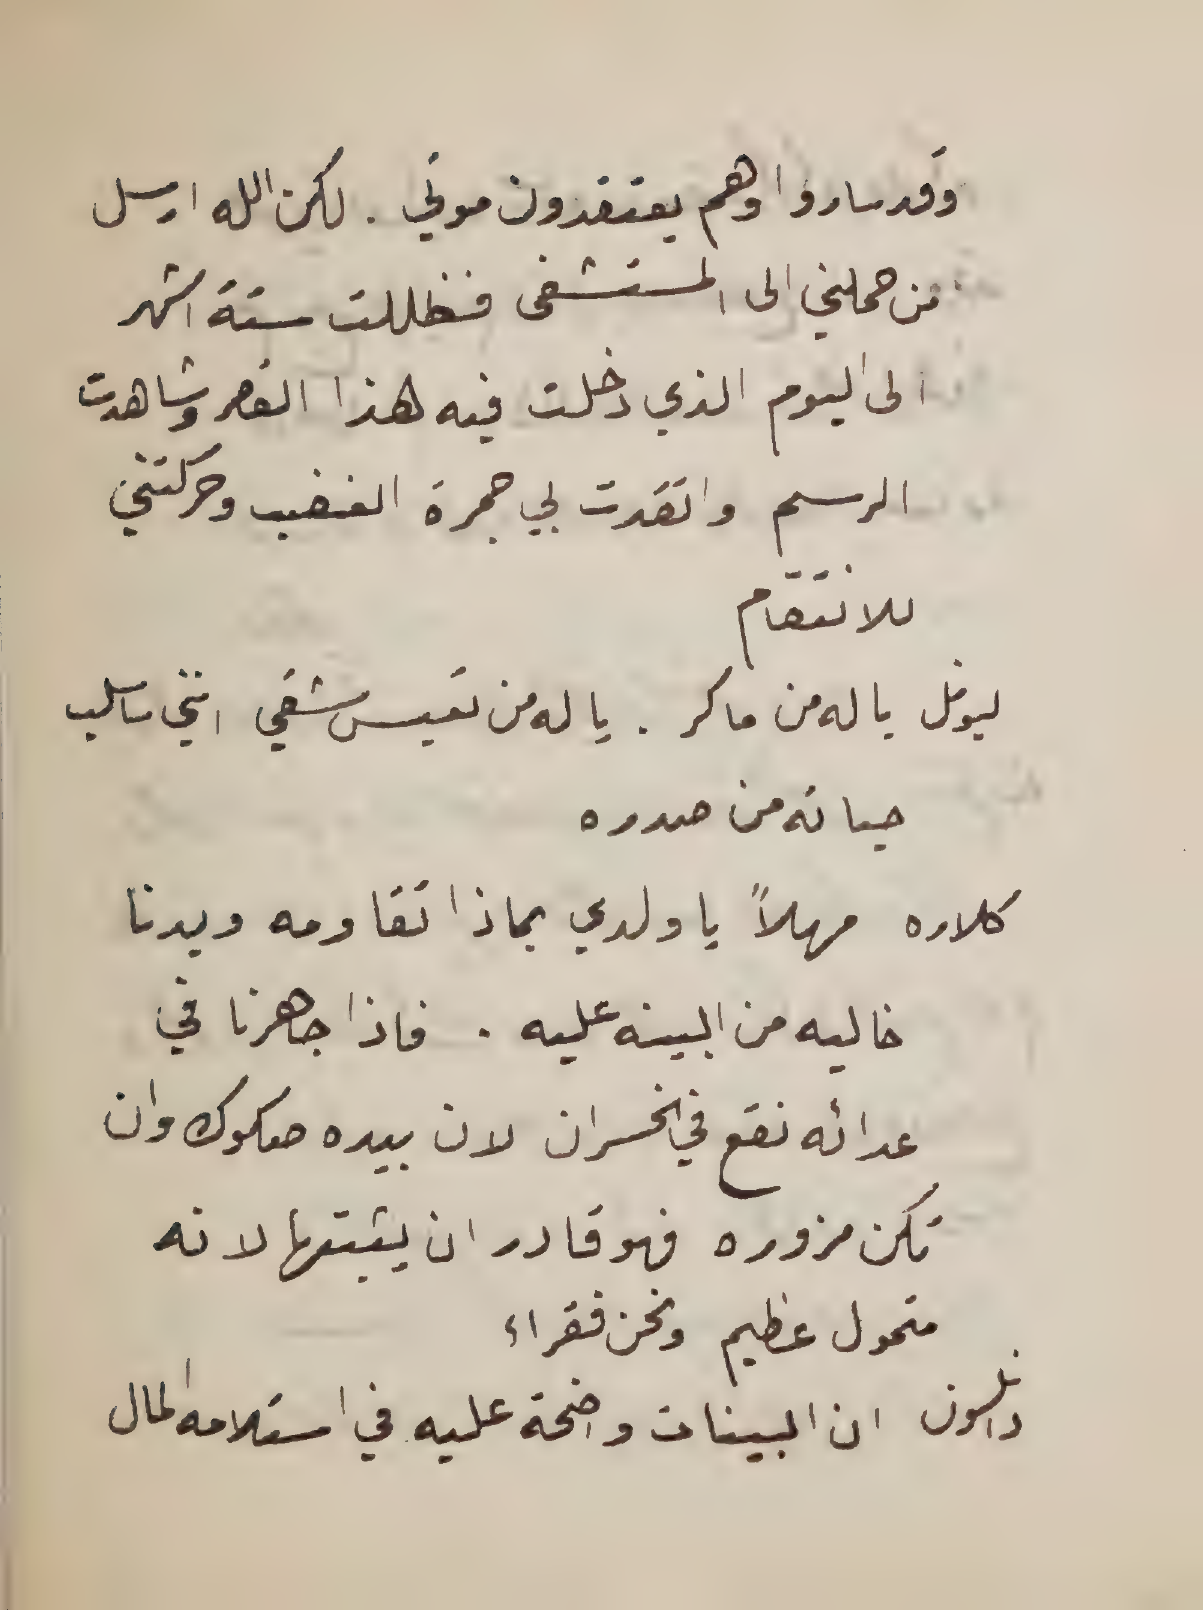 وقد ساروا وهم يعتقدون موتي . لكن الله ارسل
من حملني الى المستشفى فظللت ستة اشهر
الى اليوم الذي دخلت فيه هذا القصر وشاهدت
الرسم واتقدت بي جمرة الغضب وحركتني
للانتقام
ليونل يا له من ماكر . يا له من تعيس شقي انني ساسلب
حياته من صدره
كلاره مهلاً يا ولدي بماذا تقاومه ويدنا
خاليه من البينه عليه . فاذا جاهرنا في
عدائه نقع في الخسران لان بيده صكوك وان
تكن مزوره فهو قادر ان يثبتها لانه
متمول عظيم ونحن فقراء
ان البينات واضحة عليه في استلامه المال